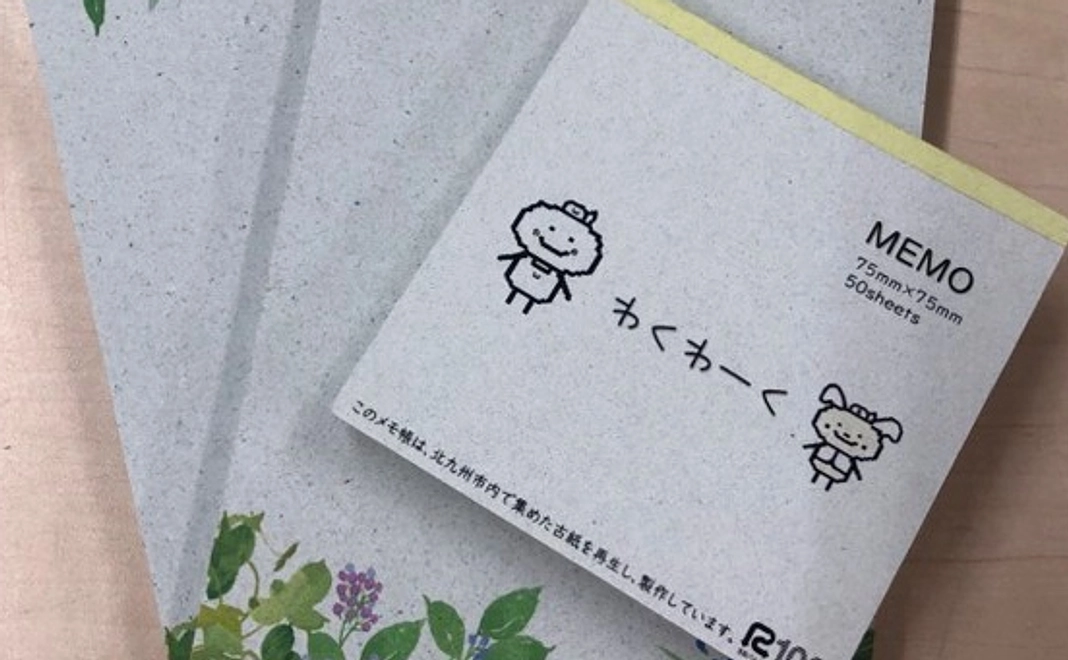 MEMO
75mm×75mm
50sheets
わくわーく
このメモ帳は、北九州市内で集めた古紙を再生し、製作しています。
R100